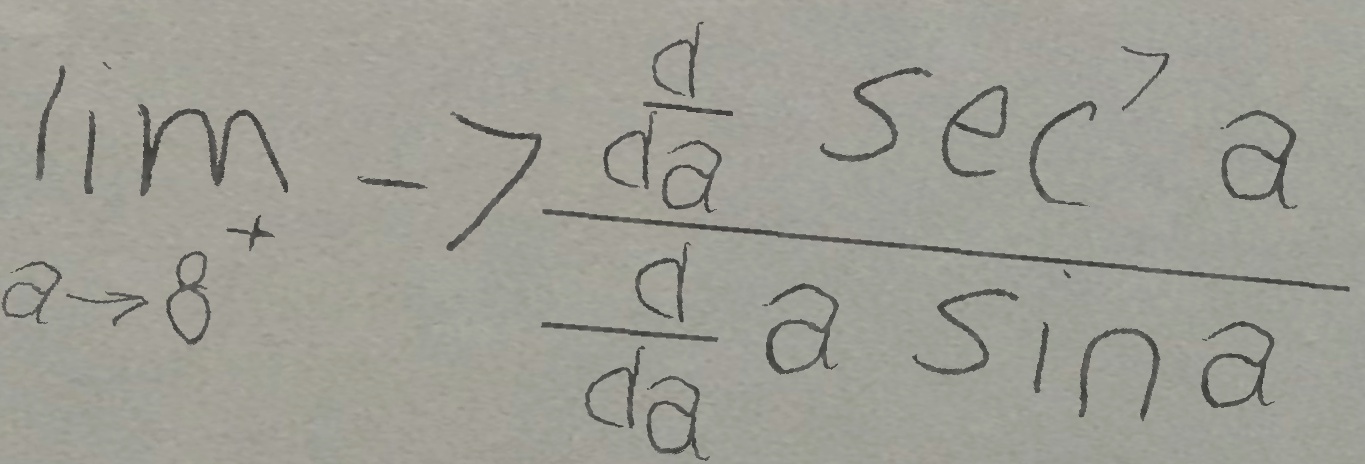 \lim_{a \to 8^+} -7 \frac{\frac{d}{da} \sec^7 a}{\frac{d}{da} a \sin a}